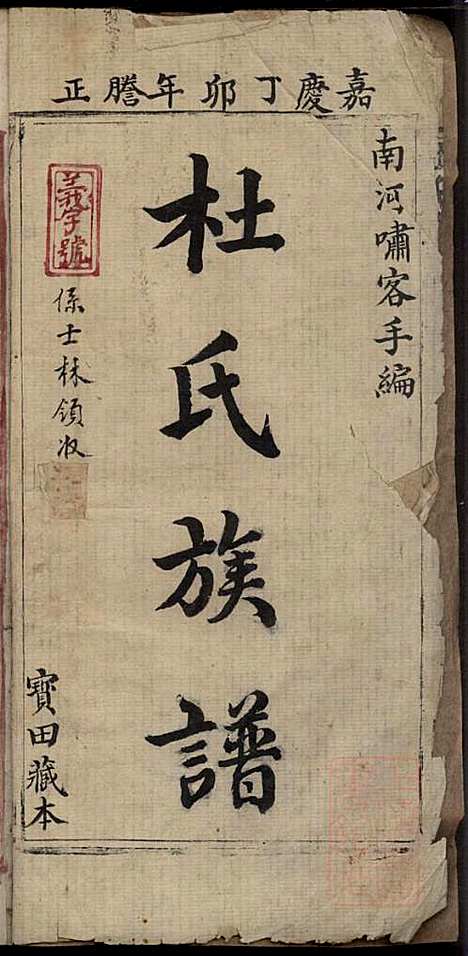 嘉慶丁卯年謄正
南河嘯客手編
杜氏族譜
義字號
係士林領收
寶田藏本